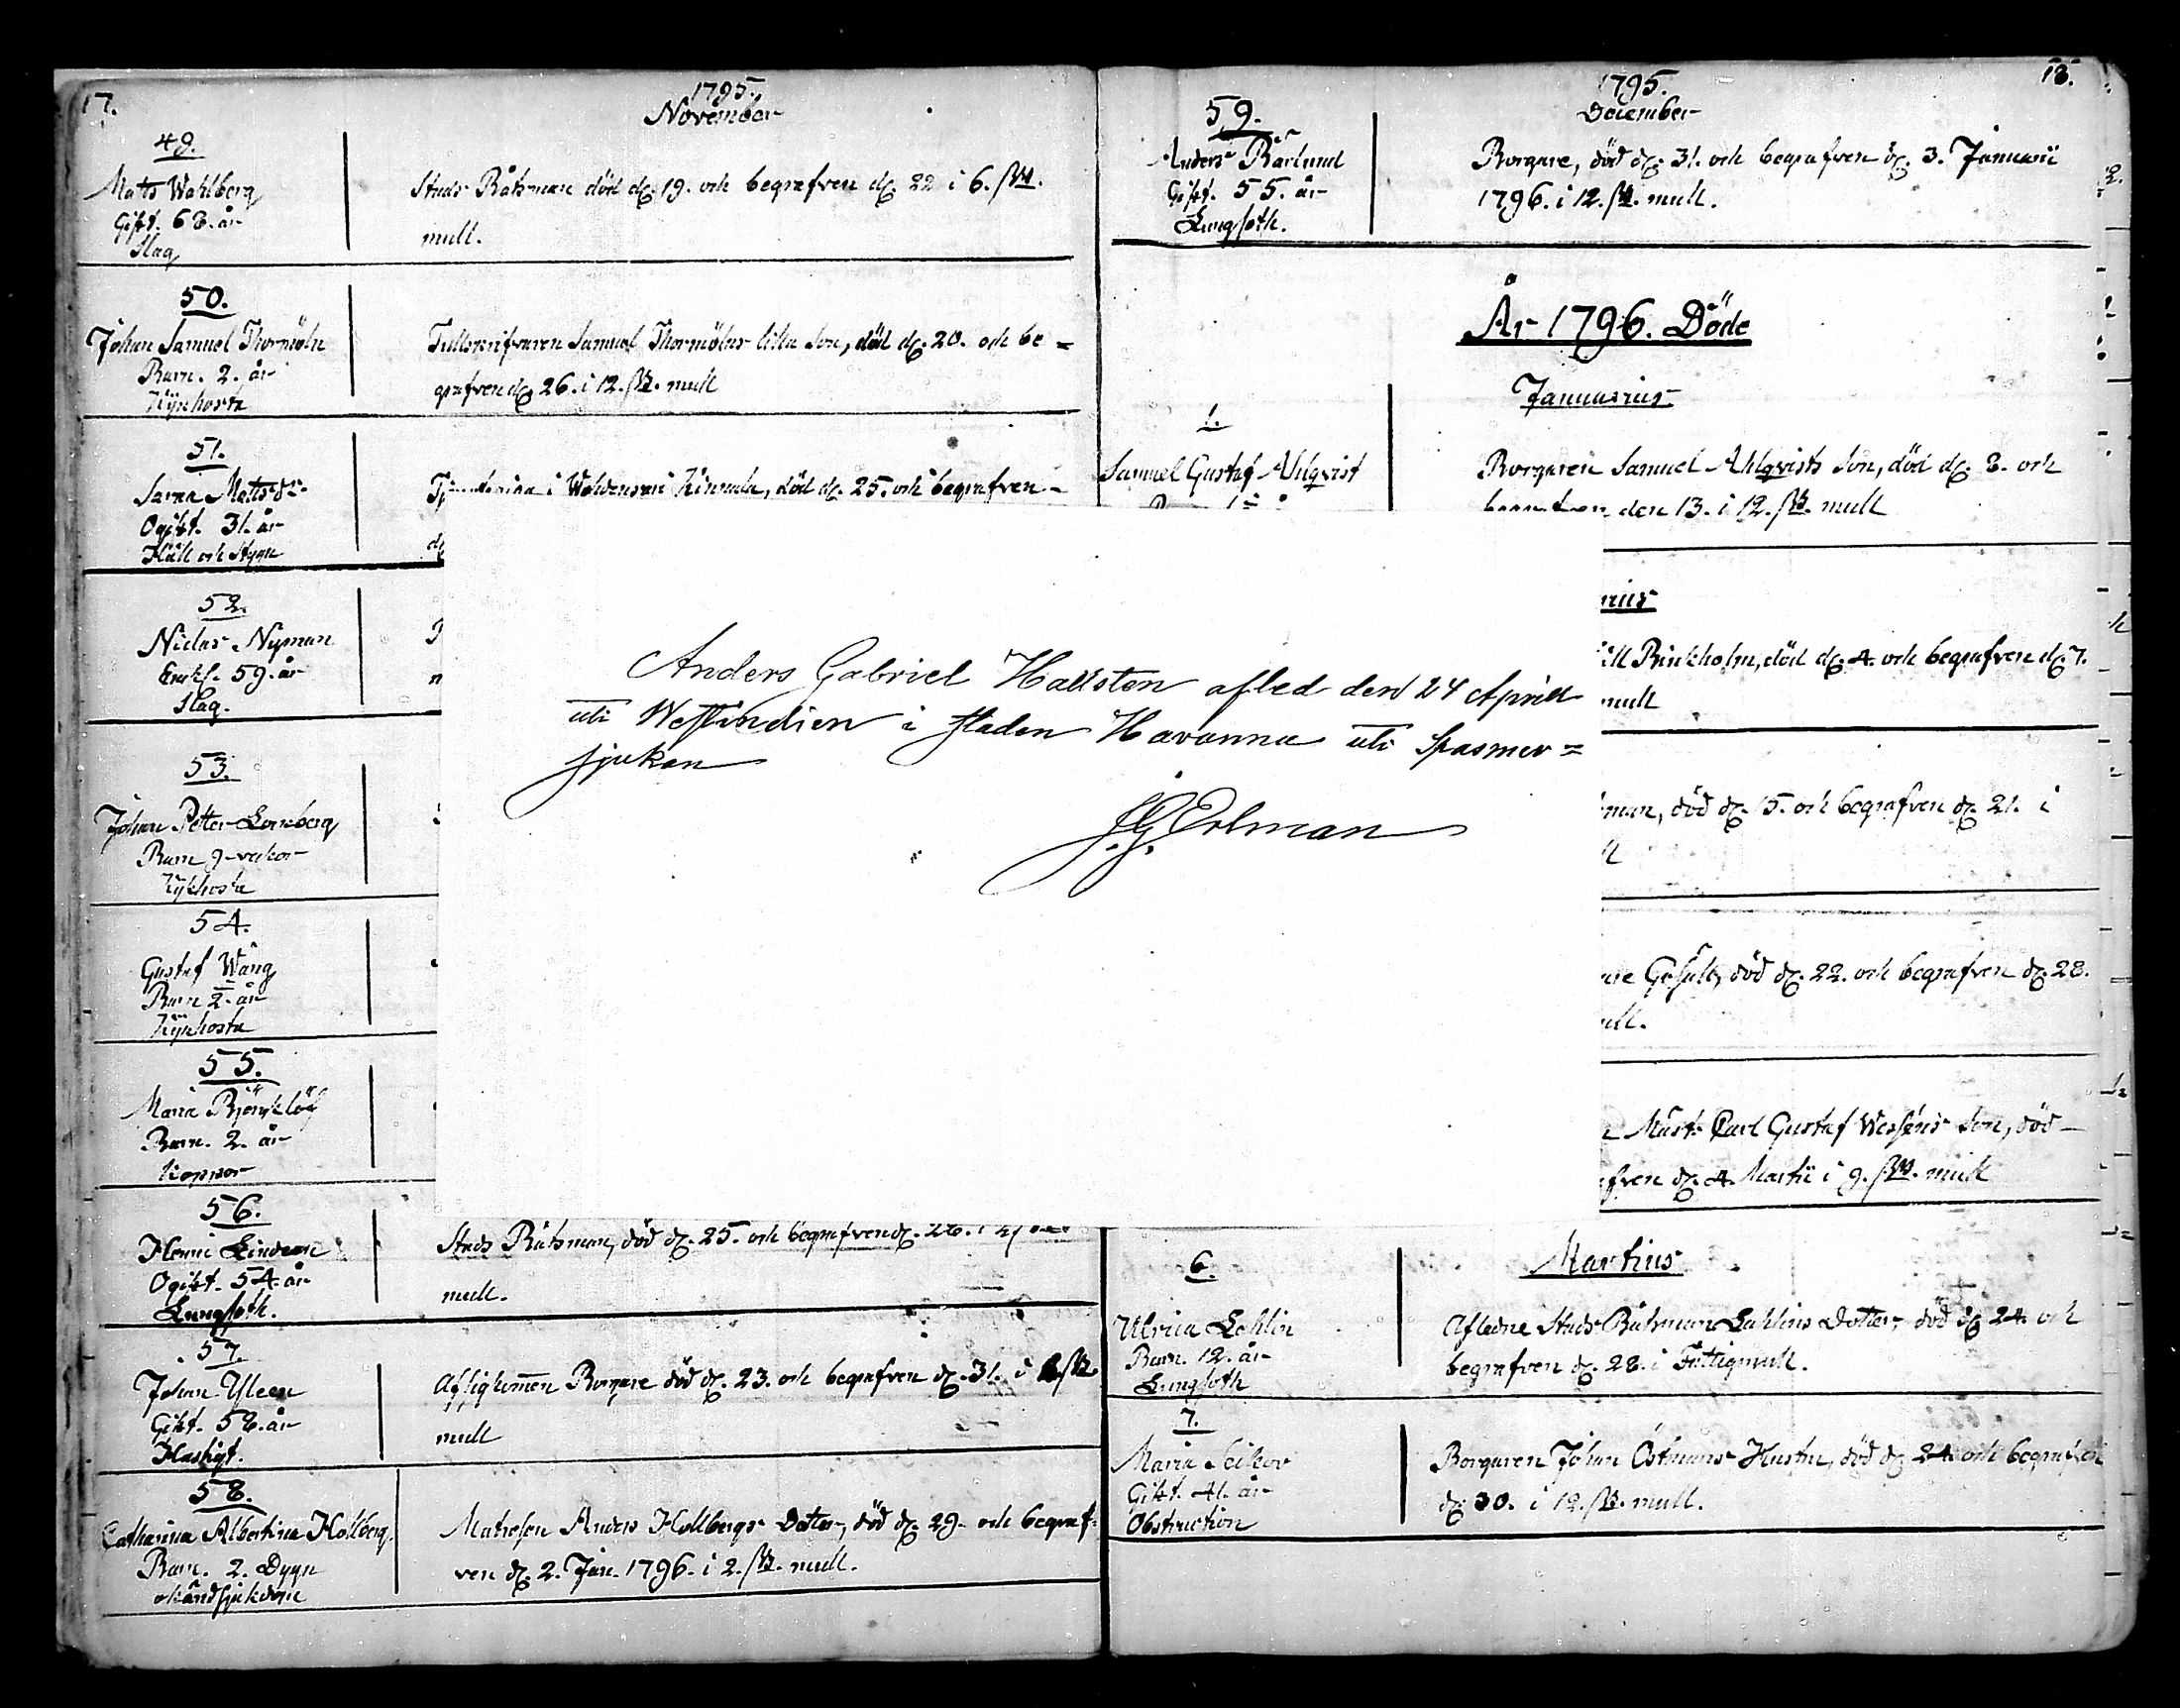 17.
1795.
November
49.
Matts Wahlberg
Gift. 68. år
Slag
Stads Båtsman död d. 19. och begrafven d. 22 i 6. ß
mull.
50.
Johan Samuel Thormöln
Barn. 2. år
Kijkhosta
Tullskrifvaren Samuel Thormölns lilla Son, död d. 20. och be=
grafven d. 26. i 12. ß. mull
51.
Sara Mattsdr
Ogift. 31. år
Håll och Stygn
i Kinnala, död d. 25. och begrafven
52.
Niclas Nyman
Enkl. 59. år
Slag.
53.
Johan Petter Lönnberg
Barn 9 veckor
Kijkhosta
54.
Gustaf Wäng
Barn 2. år
Kijkhosta
55.
Maria Björklöf
Barn. 2. år
Koppor
56.
Henric Lindeen
Ogift. 54. år
Lungsoth.
Stads Båtsman, död d. 25. och begrafven d. 28. i
mull.
57.
Johan Yleen
Gift. 58. år
Hastigt.
Borgare död d. 23. och begrafven d. 31. i ß
mull
58.
Catharina Albertina Hollberg.
Barn. 2. Dygn
okänd sjukdom
Matrosen Anders Hollbergs Dotter, död d. 29. och begraf=
ven d. 2. Jan. 1796. i 2. ß. mull.
Anders Gabriel Hallsten afled den 24 Aprill
uti Westindien i staden Havanna uti Spasmer=
sjukan
J. G. Erlman
18.
1795.
December
59.
Anders Bärlund
Gift. 55. år
Lungsoth.
Borgare, död d. 31. och begrafven d. 3. Januarii
1796. i 12. ß. mull.
År 1796. Döde
Januarius
1.
Samuel Gustaf Ahlqvist
Borgaren Samuel Ahlqvists Son, död d. 8. och
begrafven den 13. i 12. ß. mull
rius
Brinkholm, död d. 4. och begrafven d. 7.
mull
man, död d. 15. och begrafven d. 21. i
död d. 22. och begrafven d. 28.
ull.
Carl Gustaf Wessens Son, död
fven d. 4. Martii i 9. ß. mull
Martius
6.
Ulrica Lohlin
Barn. 12. år
Lungsoth
Afledne Stads Båtsman Lahlins Dotter, död d. 24. och
begrafven d. 28. i Fattigmull.
7.
Maria
Gift. 41. år
Obstruction
Borgaren Johan Östmans Hustru, död d. 24. och begrafven
d. 30. i 12. ß. mull.